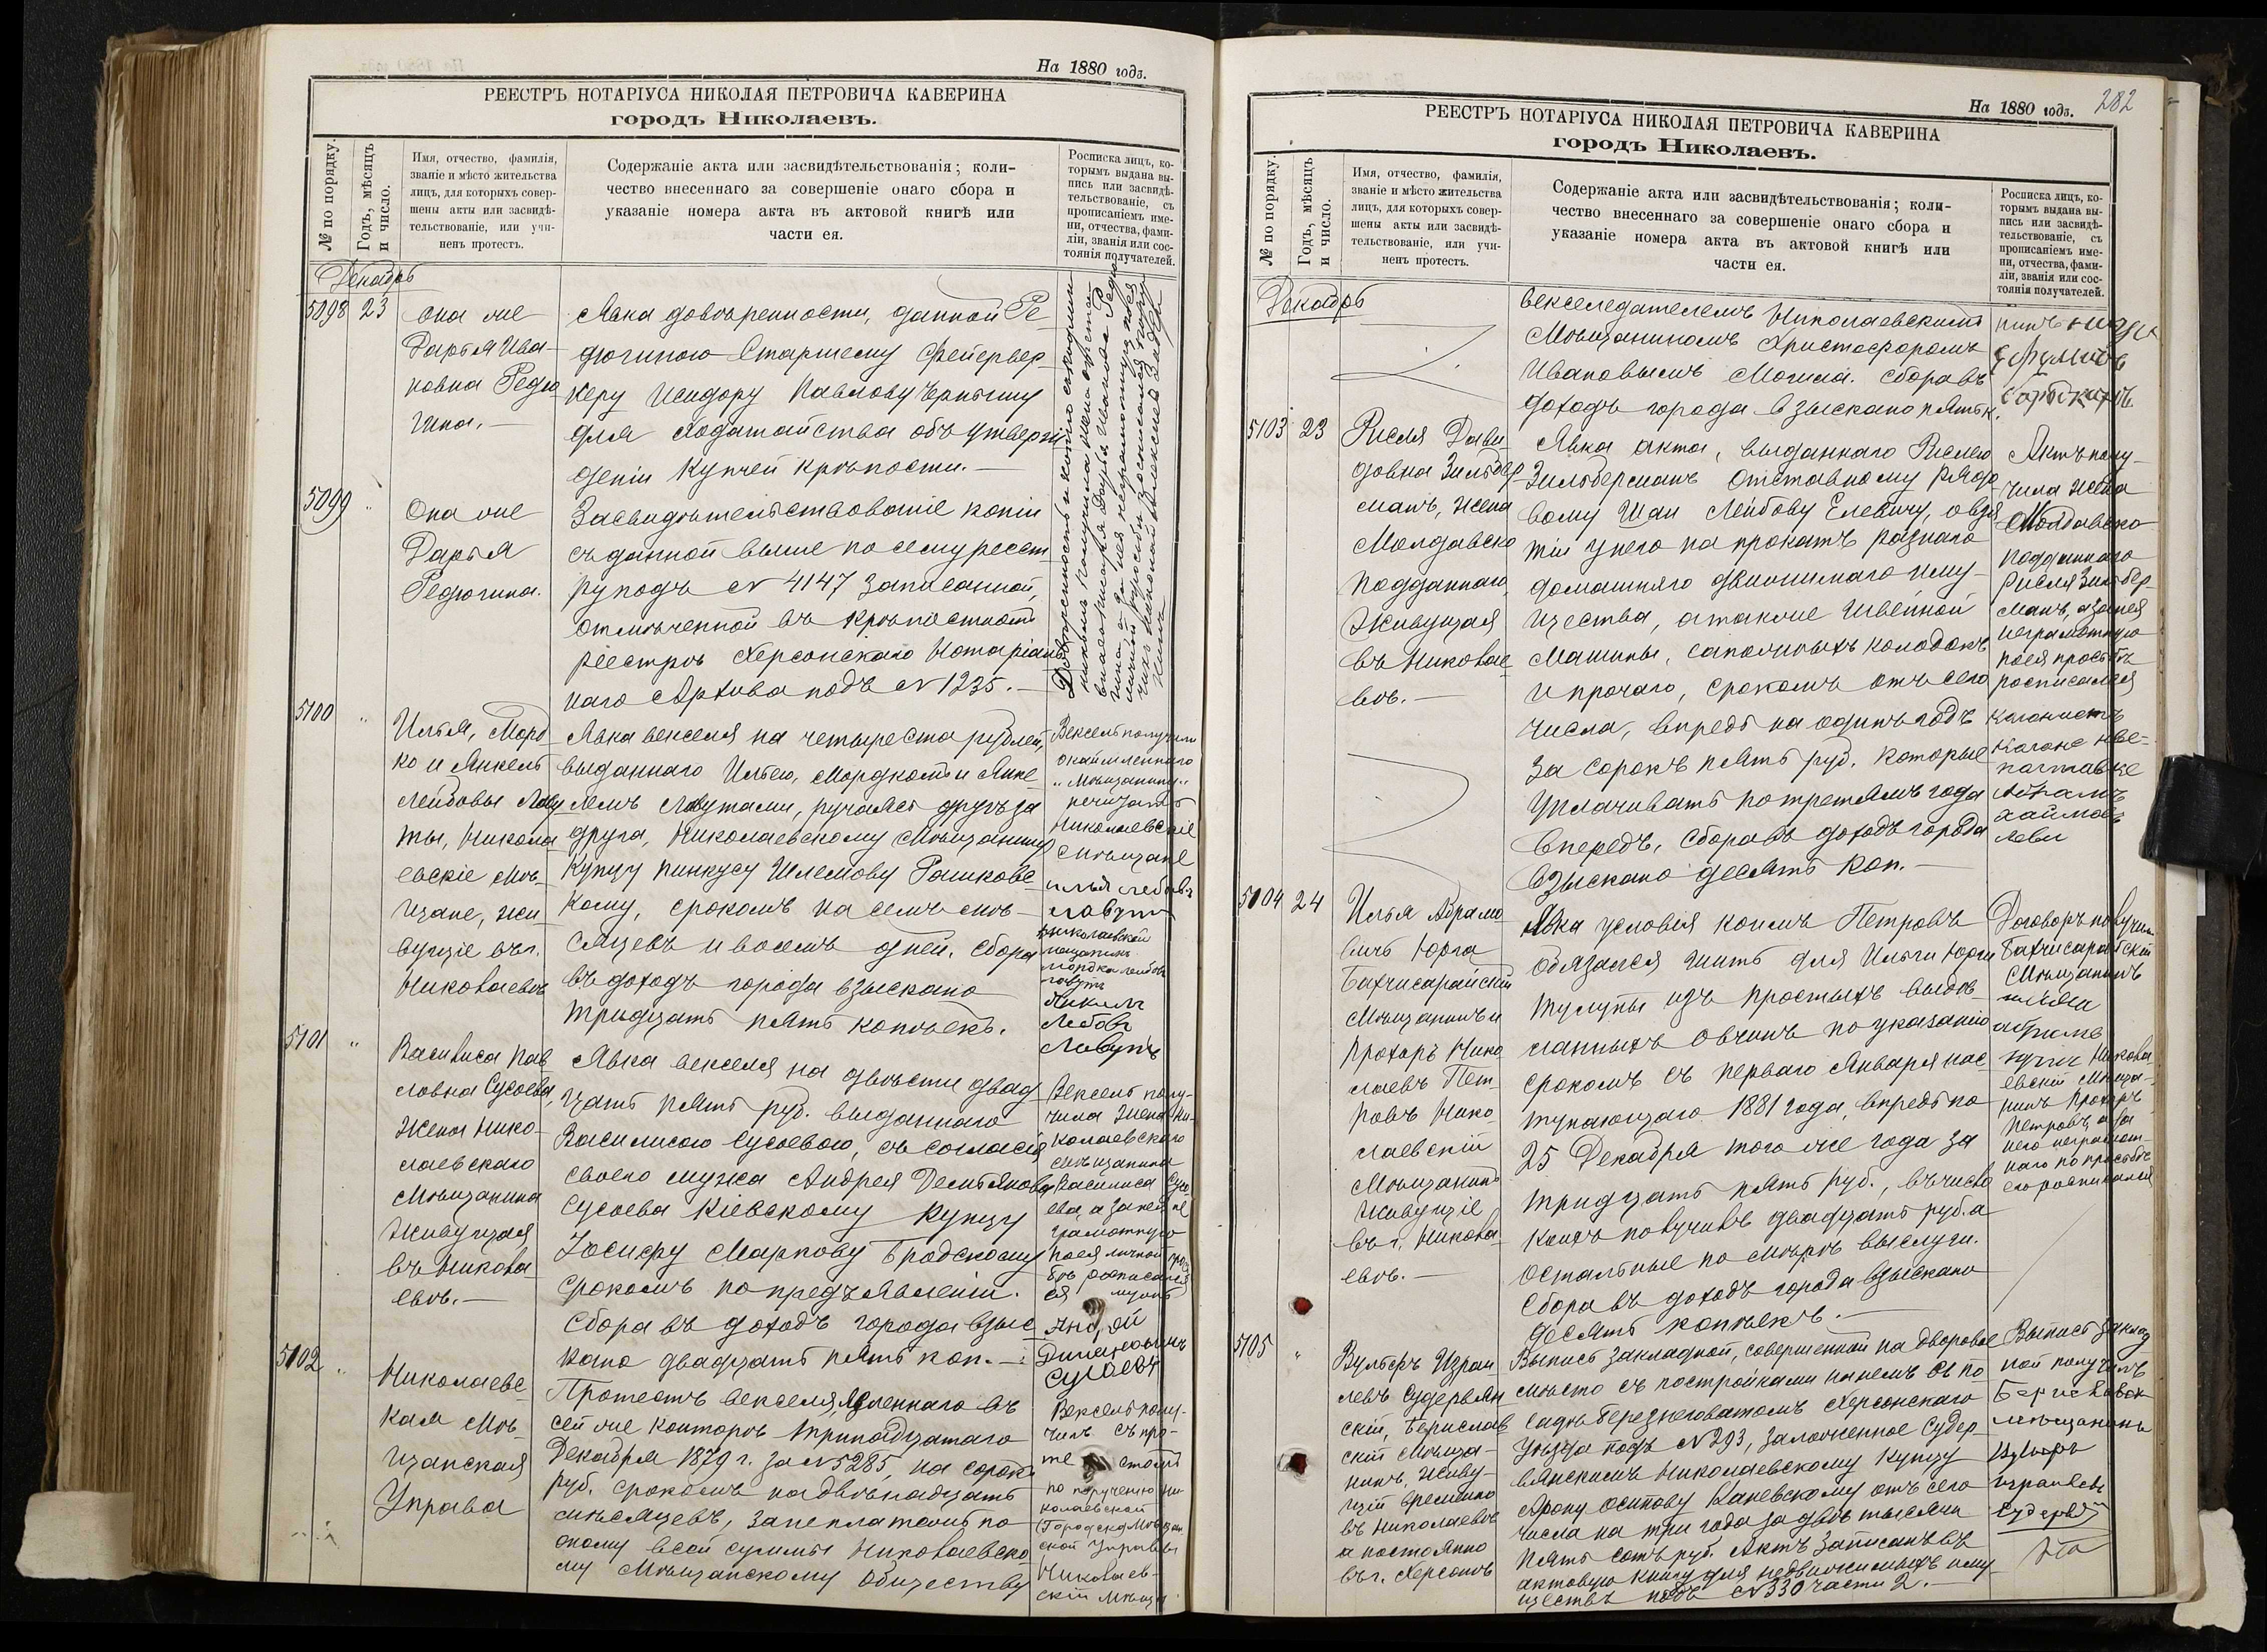 На 1880 годъ.
РЕЕСТРЪ НОТАРІУСА НИКОЛАЯ ПЕТРОВИЧА КАВЕРИНА
городъ Николаевъ.
№ по порядку.
Годъ, мѣсяцъ
и число.
Имя, отчество, фамилія,
званіе и мѣсто жительства
лицъ, для которыхъ совер-
шены акты или засвидѣ-
тельствованіе, или учи-
ненъ протестъ.
Содержаніе акта или засвидѣтельствованія; коли-
чество внесеннаго за совершеніе онаго сбора и
указаніе номера акта въ актовой книгѣ или
части ея.
Росписка лицъ, ко-
торымъ выдана вы-
пись или засвидѣ-
тельствованіе, съ
прописаніемъ име-
ни, отчества, фами-
ліи, званія или сос-
тоянія получателей.
Декабрь
5098 23
Она же
Дарья Ива-
новна Редю
гина.
Явка довѣренности, данной Ре-
дюгиною Старшему Фейервер-
керу Исидору Павлову
для ходатайства объ утверж
деніи Купчей крѣпости.
5099 "
Она же
Дарья
Редюгина.
Засвидѣтельствованіе копіи
съ данной выше по сему реест
ру подъ № 4147 записанной,
отмѣченной въ крѣпостномъ
реестрѣ Херсонскаго Нотаріаль
наго Архива подъ № 1235.
5100 "
Илья, Морд
ко и Янкель
Лейбовы Лаву
ты, Никола
евскіе мѣ-
щане, жи
вущіе въ г.
Николаевѣ
Явка векселя на четыреста рублей,
выданнаго Ильею, Мордкомъ и Янке
лемъ Лавутами, ручаясь другъ за
друга, Николаевскому Мѣщанину
Купцу Пинкусу Шлемову Рашковс
кому, срокомъ на семь мѣ-
сяцевъ и восемь дней. Сбора
въ доходъ города взыскано
тридцать пять копѣекъ.
Вексель получили
"Мѣщанину"
Николаевскіе
Мѣщане
николаевской
мещанинъ
Лавутъ
5101 "
Василиса Пав
ловна Сусоева,
жена Нико-
лаевскаго
Мѣщанина
живущая
въ Никола-
евѣ.
Явка векселя на двѣсти двад
цать пять руб. выданнаго
Василисою Сусоевою, съ согласія
своего мужа Андрея Дементьянова
Сусоева Кіевскому Купцу
Іосифу Маркову Бродскому
срокомъ по предъявленіи.
Сбора въ доходъ города взыс
кано двадцать пять коп.
Вексель полу-
чила жена Ни-
колаевскаго
мѣщанина
Василиса Сусо
ева, а за нея не
грамотную
по ея личной прось
бѣ росписался
ея мужъ
Сусоевъ
5102 "
Николаевс-
кая Мѣ-
щанская
Управа
Протестъ векселя, явленнаго въ
сей же конторѣ тринадцатаго
Декабря 1879 г. за № 5285, на сорокъ
руб. срокомъ на двѣнадцать
мѣсяцевъ, за неплатежъ по
оному всей суммы Николаевско
му Мѣщанскому Обществу
Вексель полу-
чилъ съ про-
те стомъ
по порученію Ни-
колаевской
Городской Мѣщан
ской Управы
Николаев-
скій Мѣща
На 1880 годъ.
282
РЕЕСТРЪ НОТАРІУСА НИКОЛАЯ ПЕТРОВИЧА КАВЕРИНА
городъ Николаевъ.
№ по порядку.
Годъ, мѣсяцъ
и число.
Имя, отчество, фамилія,
званіе и мѣсто жительства
лицъ, для которыхъ совер-
шены акты или засвидѣ-
тельствованіе, или учи-
ненъ протестъ.
Содержаніе акта или засвидѣтельствованія; коли-
чество внесеннаго за совершеніе онаго сбора и
указаніе номера акта въ актовой книгѣ или
части ея.
Росписка лицъ, ко-
торымъ выдана вы-
пись или засвидѣ-
тельствованіе, съ
прописаніемъ име-
ни, отчества, фами-
ліи, званія или сос-
тоянія получателей.
Декабрь
векселедателемъ Николаевскимъ
Мѣщаниномъ Христофоромъ
Ивановымъ Сбора въ
доходъ города взыскано пять к.
нинъ
5103 23
Рисля Дави
довна Зильбер
манъ, жена
Молдавско
подданнаго,
живущая
въ Николае
вѣ.
Явка акта, выданнаго Рислею
Зильберманъ отставному рядо
вому Шаи Лейбову Елевичу, о взя
тіи у него на прокатъ разнаго
домашняго движимаго иму-
щества, а также швейной
машины, сапожныхъ колодокъ
и прочаго, срокомъ отъ сего
числа, впредь на одинъ годъ
за сорокъ пять руб. которые
уплачивать по третямъ года
впередъ. Сбора въ доходъ города
взыскано десять коп.
Актъ полу-
чила жена
Молдавско
подданнаго
Рисля Зильбер-
манъ, а за нея
неграмотную
по ея просьбѣ
росписался
колонистъ
Леви
5104 24
Илья Абрамо
вичъ Юрга
Бахчисарайскій
Мѣщанинъ и
Прохоръ Нико
лаевъ Пет-
ровъ Нико-
лаевскій
Мѣщанинъ
живущіе
въ г. Никола-
евѣ.
Явка условія коимъ Петровъ
обязался шить для Ильи Юрги
тулупы изъ простыхъ выдѣ-
ланныхъ овчинъ по указанію
срокомъ съ перваго Января нас
тупающаго 1881 года, впредь по
25 Декабря того же года за
тридцать пять руб., въ число
коихъ получивъ двадцать руб. а
остальные по мѣрѣ выслуги.
Сбора въ доходъ города взыскано
десять копѣекъ.
Договоръ получили
Бахчисарайскій
Мѣщанинъ
Никола
евскій Мѣща-
нинъ Прохоръ
Петровъ, а за
него неграмот-
наго по просьбѣ
его росписался
5105 "
Вульфъ Израи
левъ Судервян
скій, Берислав
скій Мѣща-
нинъ, живу-
щій временно
въ Николаевѣ
а постоянно
въ г. Херсонѣ
Выпись закладной, совершенной на дворовое
мѣсто съ постройками на немъ въ по
садѣ Березнеговатомъ Херсонскаго
уѣзда подъ № 293, заложенное Судер-
вянскимъ Николаевскому Купцу
Арону Осипову Каневскому отъ сего
числа на три года за двѣ тысячи
пять сотъ руб. Актъ записанъ въ
актовую книгу для недвижимыхъ иму-
ществъ подъ № 330 части 2.
Выпись заклад
ной получилъ